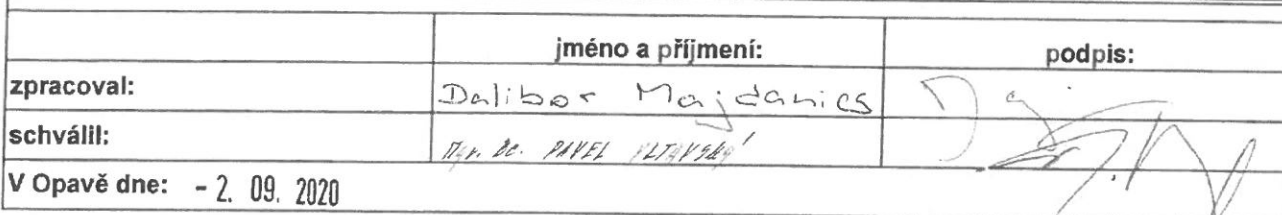 jméno a příjmení: podpis:
zpracoval: Dalibor Majdanics
schválil: Mgr. Bc. PAVEL VLTAVSKÝ
V Opavě dne: - 2. 09. 2020